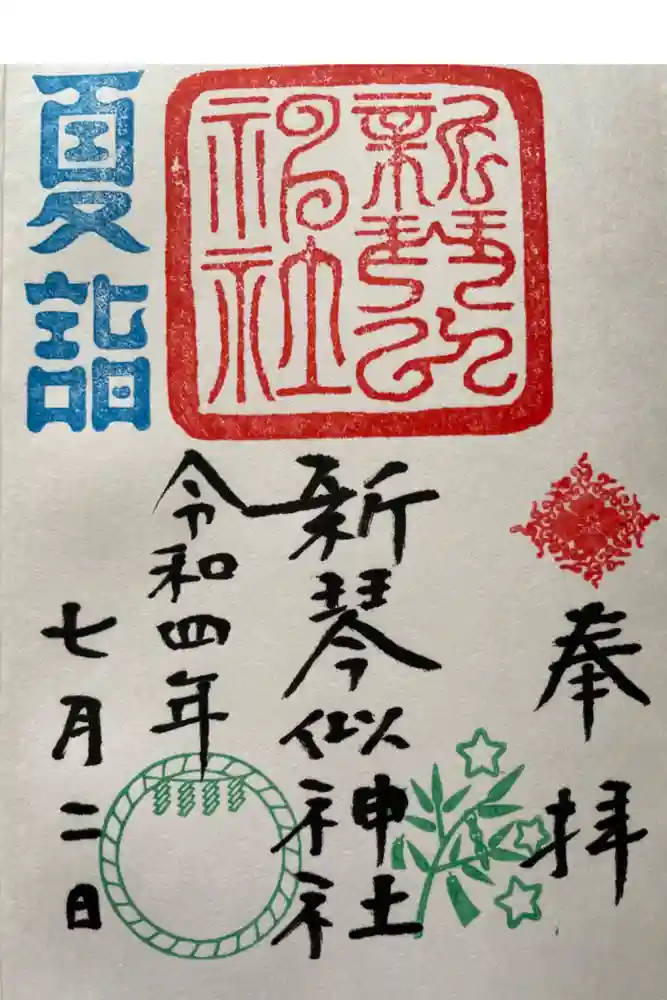 奉拝
新琴似神社
新琴似
神社
令和四年
七月二日
夏詣